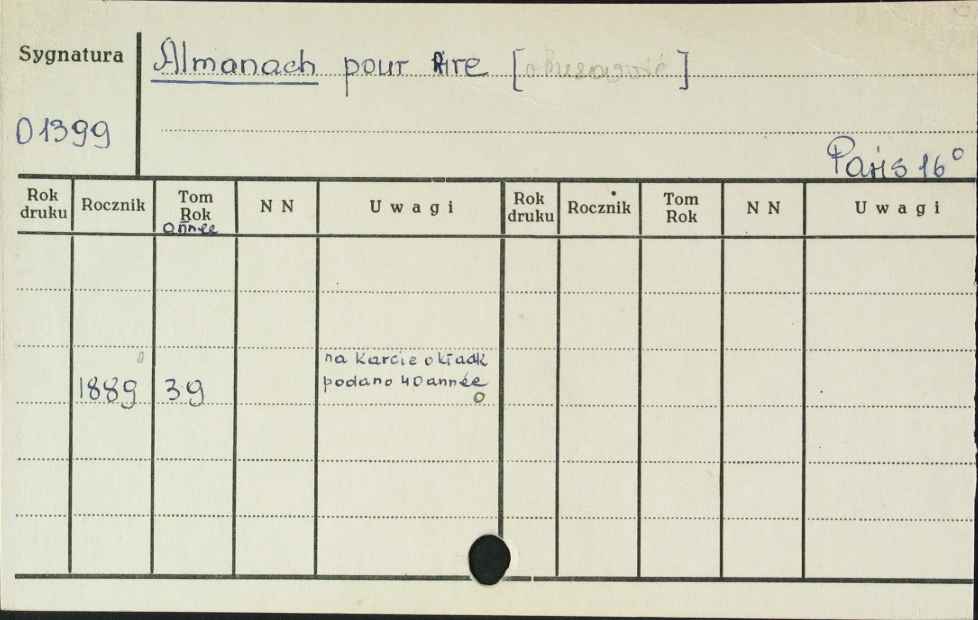 Sygnatura
Almanach pour Rire [ ]
01399
Paris 16°
Rok druku Rocznik Tom Rok NN Uwagi Rok druku Rocznik Tom Rok NN Uwagi
année
na karcie okładk
1889 39 podano 40 année